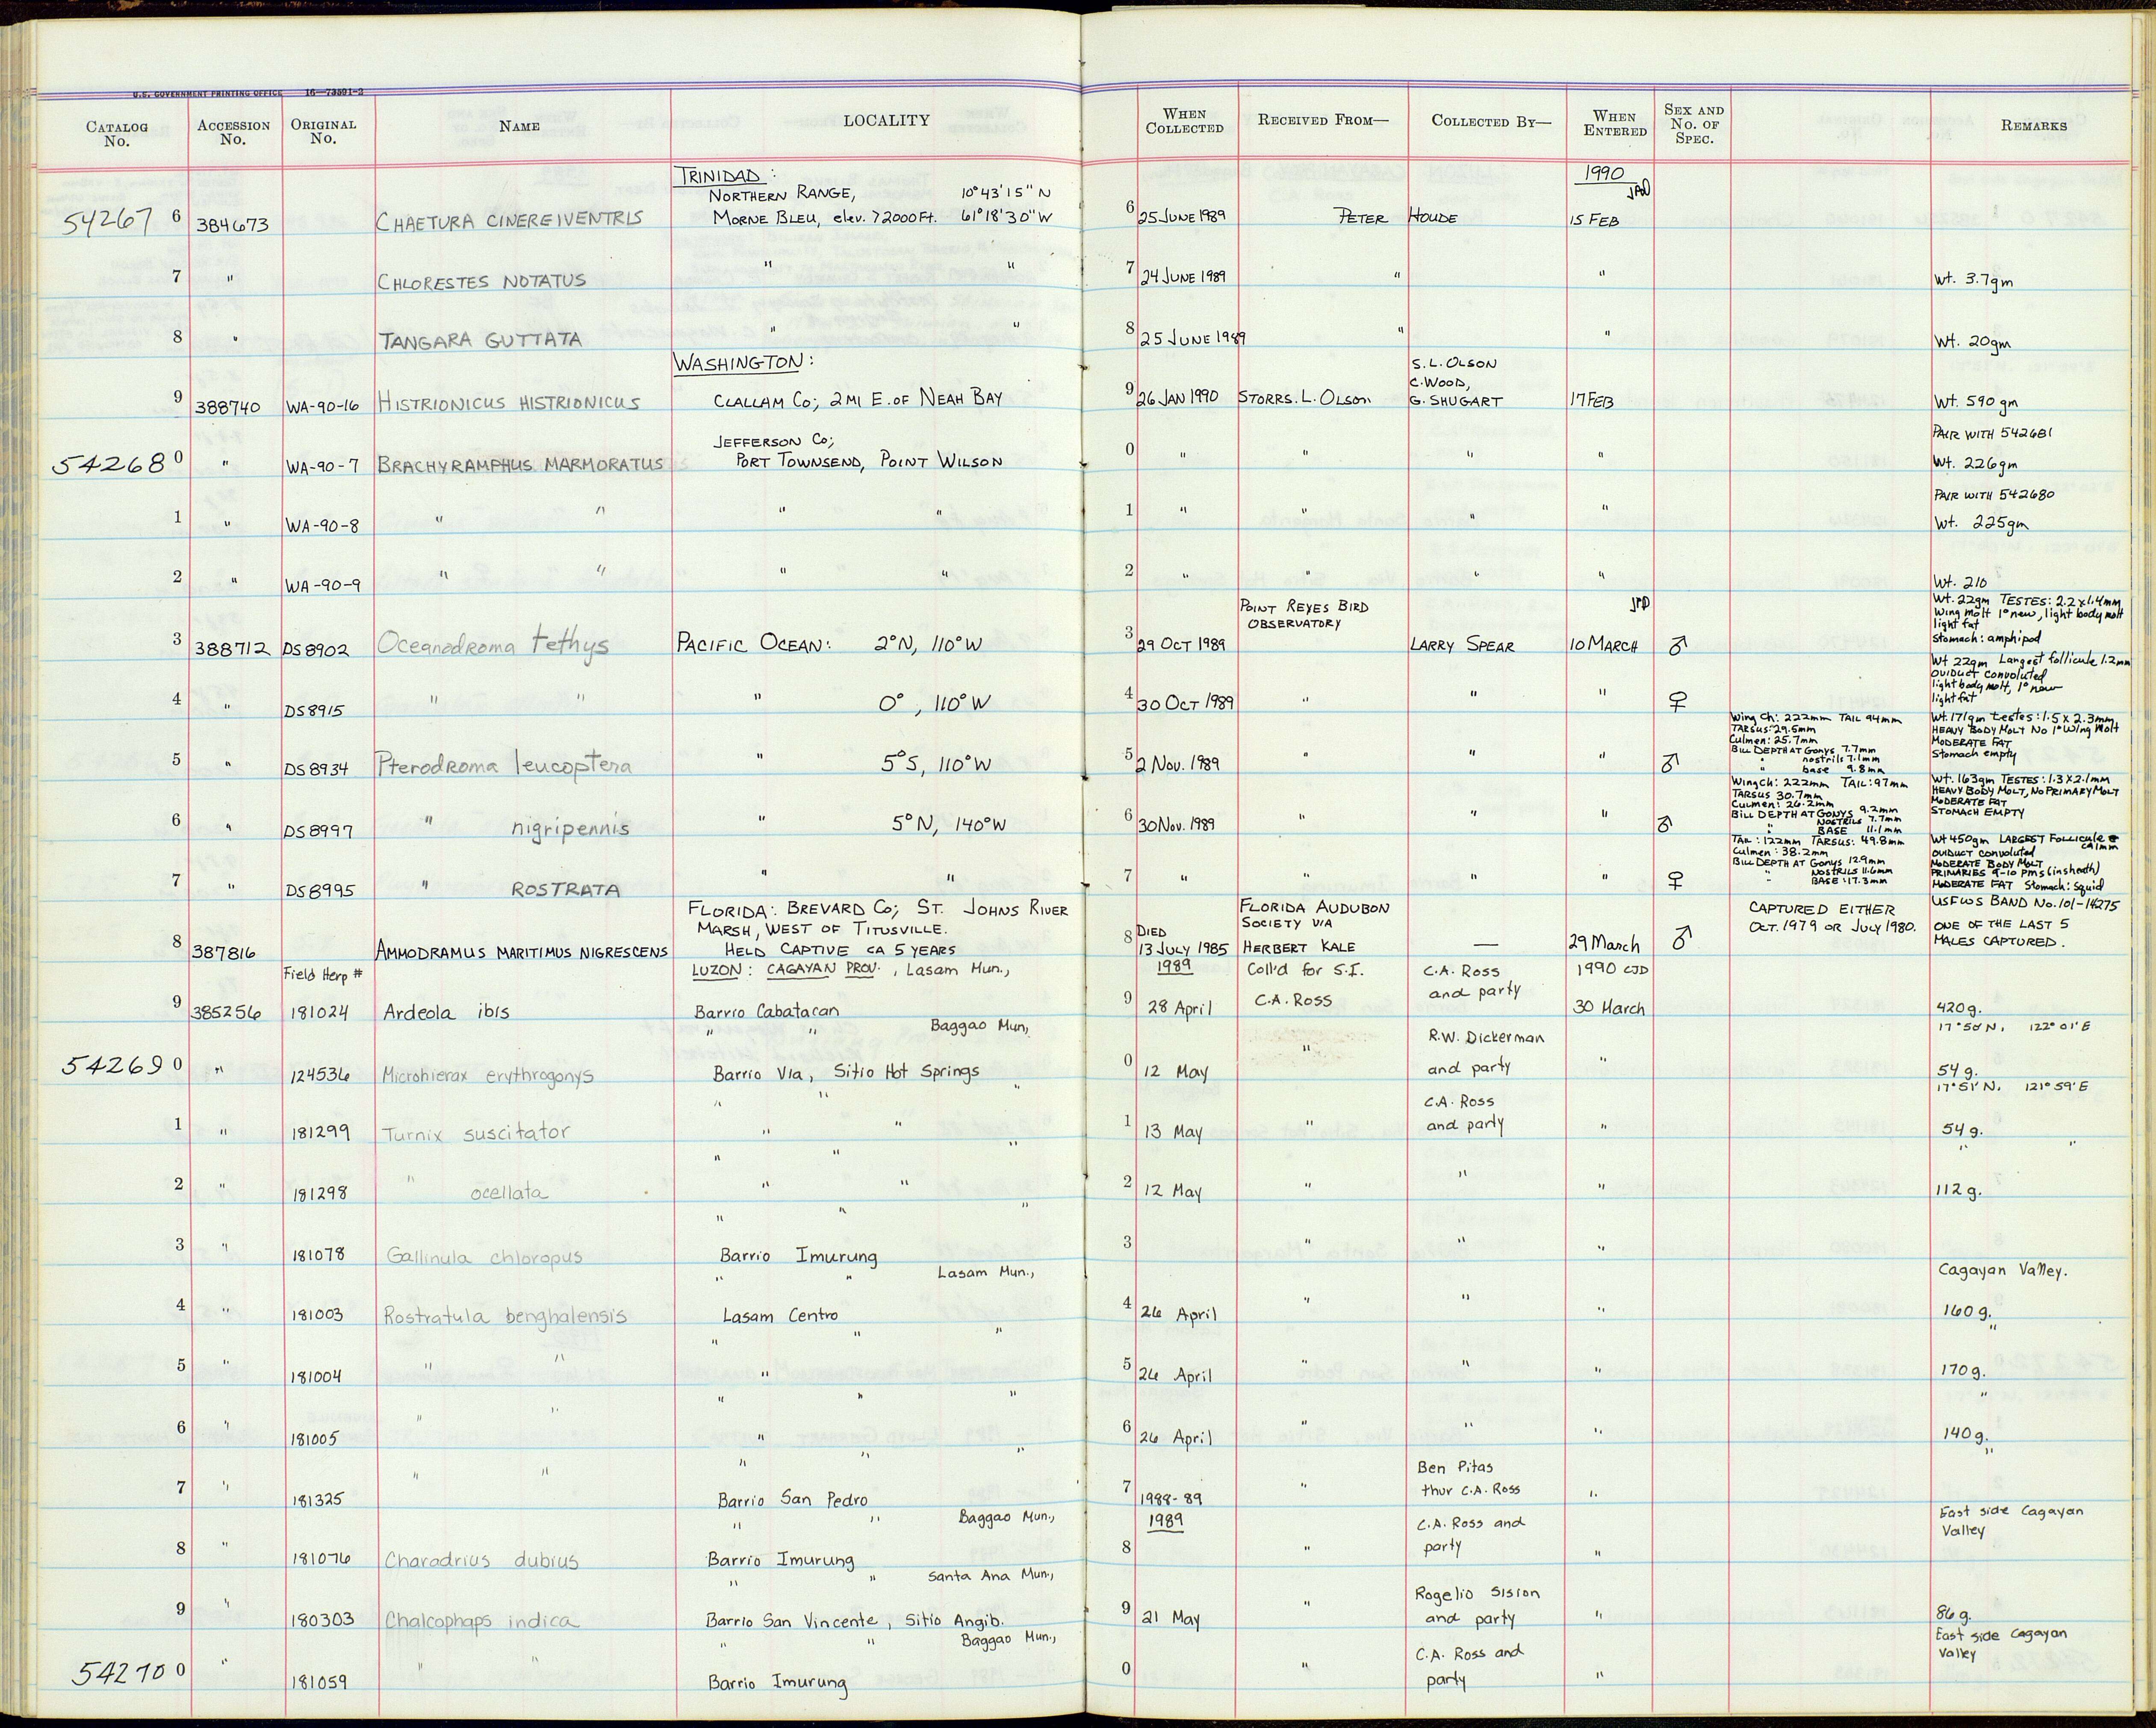 U.S. GOVERNMENT PRINTING OFFICE 16—73591-2
CATALOG No. ACCESSION No. ORIGINAL No. NAME LOCALITY WHEN COLLECTED RECEIVED FROM— COLLECTED BY— WHEN ENTERED SEX AND No. OF SPEC. REMARKS
TRINIDAD: 1990
NORTHERN RANGE, 10°43'15" N JAD
54267 6 384673 CHAETURA CINEREIVENTRIS MORNE BLEU, elev. >2000 Ft. 61°18'30" W 6 25 JUNE 1989 PETER HOUDE 15 FEB
7 " CHLORESTES NOTATUS " " 7 24 JUNE 1989 " " Wt. 3.7gm
8 " TANGARA GUTTATA " " 8 25 JUNE 1989 " " Wt. 20gm
WASHINGTON: S.L. OLSON
C. WOOD,
9 388740 WA-90-16 HISTRIONICUS HISTRIONICUS CLALLAM Co; 2 MI E. OF NEAH BAY 9 26 JAN 1990 STORRS. L. OLSON G. SHUGART 17 FEB Wt. 590 gm
JEFFERSON Co; PAIR WITH 542681
54268 0 " WA-90-7 BRACHYRAMPHUS MARMORATUS PORT TOWNSEND, POINT WILSON 0 " " " " Wt. 226gm
PAIR WITH 542680
1 " WA-90-8 " " " " 1 " " " " Wt. 225gm
2 " WA-90-9 " " " " 2 " " " " Wt. 210
POINT REYES BIRD OBSERVATORY Wt. 22gm TESTES: 2.2 x 1.4mm
Wing molt 1° new, light body molt
light fat
3 388712 DS8902 Oceanodroma tethys PACIFIC OCEAN: 2°N, 110°W 3 29 OCT 1989 LARRY SPEAR 10 MARCH ♂ Stomach: amphipod
Wt 22gm Largest follicule 1.2mm
OVIDUCT convoluted
light body molt, 1° new
4 " DS8915 " " " 0°, 110°W 4 30 OCT 1989 " " " ♀ light fat
Wing Ch: 222mm TAIL 94mm Wt. 171gm testes: 1.5 x 2.3mm
TARSUS: 29.5mm HEAVY BODY MOLT No 1° Wing Molt
Culmen: 25.7mm MODERATE FAT
BILL DEPTH AT Gonys 7.7mm Stomach empty
" nostrils 7.1mm
5 " DS8934 Pterodroma leucoptera " 5°S, 110°W 5 2 Nov. 1989 " " " ♂ " base 9.8mm
Wing Ch: 222mm TAIL: 97mm Wt. 163gm TESTES: 1.3 x 2.1mm
TARSUS 30.7mm HEAVY BODY MOLT, NO PRIMARY MOLT
Culmen: 26.2mm MODERATE FAT
BILL DEPTH AT GONYS 9.2mm STOMACH EMPTY
" NOSTRILS 7.7mm
6 " DS8997 " nigripennis " 5°N, 140°W 6 30 Nov. 1989 " " " ♂ " BASE 11.1mm
TAIL: 122mm TARSUS: 49.8mm Wt 450gm LARGEST FOLLICULE ca 1mm
Culmen: 38.2mm OVIDUCT convoluted
Bill DEPTH AT Gonys 12.9mm MODERATE BODY MOLT
" NOSTRILS 11.6mm PRIMARIES 9-10 PMS (in sheath)
7 " DS8995 " ROSTRATA " " 7 " " " " ♀ " BASE: 17.3mm MODERATE FAT Stomach: squid
FLORIDA: BREVARD Co; ST. JOHNS RIVER FLORIDA AUDUBON CAPTURED EITHER USFWS BAND No. 101-14275
MARSH, WEST OF TITUSVILLE. DIED SOCIETY VIA OCT. 1979 OR JULY 1980. ONE OF THE LAST 5
8 387816 AMMODRAMUS MARITIMUS NIGRESCENS HELD CAPTIVE CA 5 YEARS 8 13 JULY 1985 HERBERT KALE — 29 March ♂ MALES CAPTURED.
Field Herp # LUZON: CAGAYAN PROV., Lasam Mun., 1989 Coll'd for S.I. C.A. Ross 1990 CJD
9 385256 181024 Ardeola ibis Barrio Cabatacan 9 28 April C.A. Ross and party 30 March 420g.
" " Baggao Mun, R.W. Dickerman 17°50' N, 122°01' E
54269 0 " 124536 Microhierax erythrogonys Barrio Via, Sitio Hot Springs 0 12 May " and party " 54g.
" " " C.A. Ross 17°51' N. 121°59' E
1 " 181299 Turnix suscitator " " 1 13 May " and party " 54g.
" " " " "
2 " 181298 " ocellata " " 2 12 May " " " 112g.
" " "
3 " 181078 Gallinula chloropus Barrio Imurung 3 " " "
" " Lasam Mun., Cagayan Valley.
4 " 181003 Rostratula benghalensis Lasam Centro 4 26 April " " " 160g.
" " " "
5 " 181004 " " " 5 26 April " " " 170g.
" " " "
6 " 181005 " " " 6 26 April " " " 140g.
" " " Ben Pitas "
7 " 181325 " " Barrio San Pedro 7 1988-89 " thur C.A. Ross "
" " Baggao Mun., 1989 C.A. Ross and East side Cagayan Valley
8 " 181076 Charadrius dubius Barrio Imurung 8 " party "
" " Santa Ana Mun., Rogelio Sision
9 " 180303 Chalcophaps indica Barrio San Vincente, Sitio Angib. 9 21 May " and party " 86g.
" " Baggao Mun., C.A. Ross and East side Cagayan Valley
54270 0 " 181059 " " Barrio Imurung 0 " party "